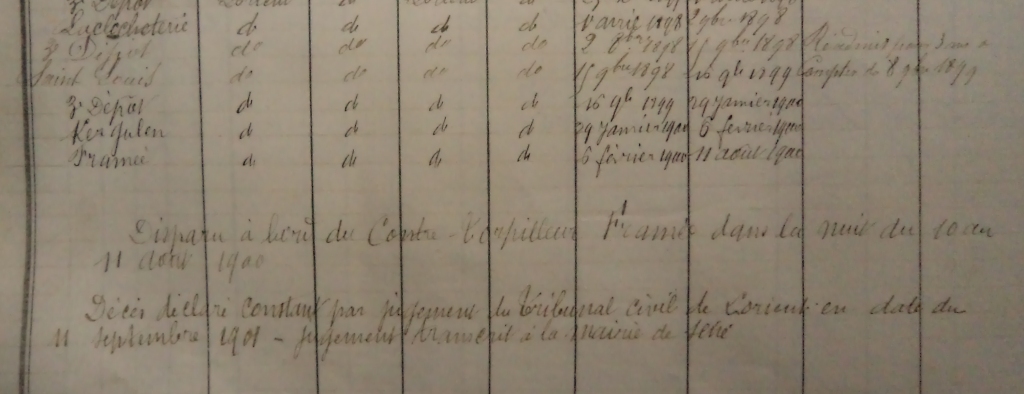 3e Dépôt Lorient do Lorient do
Laclocheterie do do do do 1er avril 1898 2 8bre 1898
3e Dépôt do do do do 2 8bre 1898 15 9bre 1898 Réadmis pour 3 ans à
Saint Louis do do do do 15 9bre 1898 16 9bre 1899 Compter du 8 9bre 1899
3e Dépôt do do do do 16 9b 1899 29 Janvier 1900
Kerguelen do do do do 29 Janvier 1900 6 fevrier 1900
Framée do do do do 6 février 1900 11 aout 1900
Disparu à bord du Contre-Torpilleur Framée dans la nuit du 10 au
11 aout 1900
Décès déclaré constant par jugement du Tribunal civil de Lorient en date du
11 septembre 1901 - jugement transcrit à la mairie de Séné